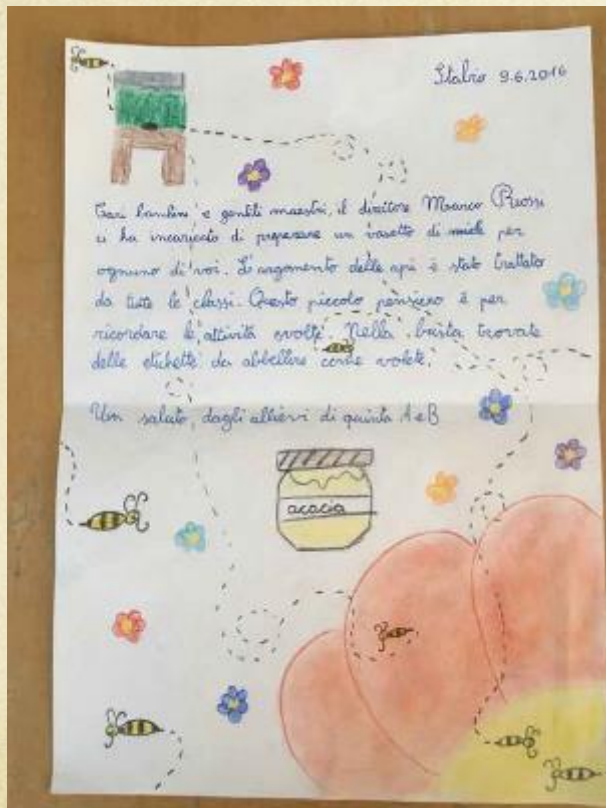 Stabio 9.6.2016
Cari bambini e gentili maestri, il direttore Marco Rossi
ci ha incaricato di preparare un vasetto di miele per
ognuno di voi. L'argomento delle api è stato trattato
da tutte le classi. Questo piccolo pensiero è per
ricordare le attività svolte. Nella busta trovate
delle etichette da abbellire come volete.
Un saluto, dagli allievi di quinta A e B
acacia